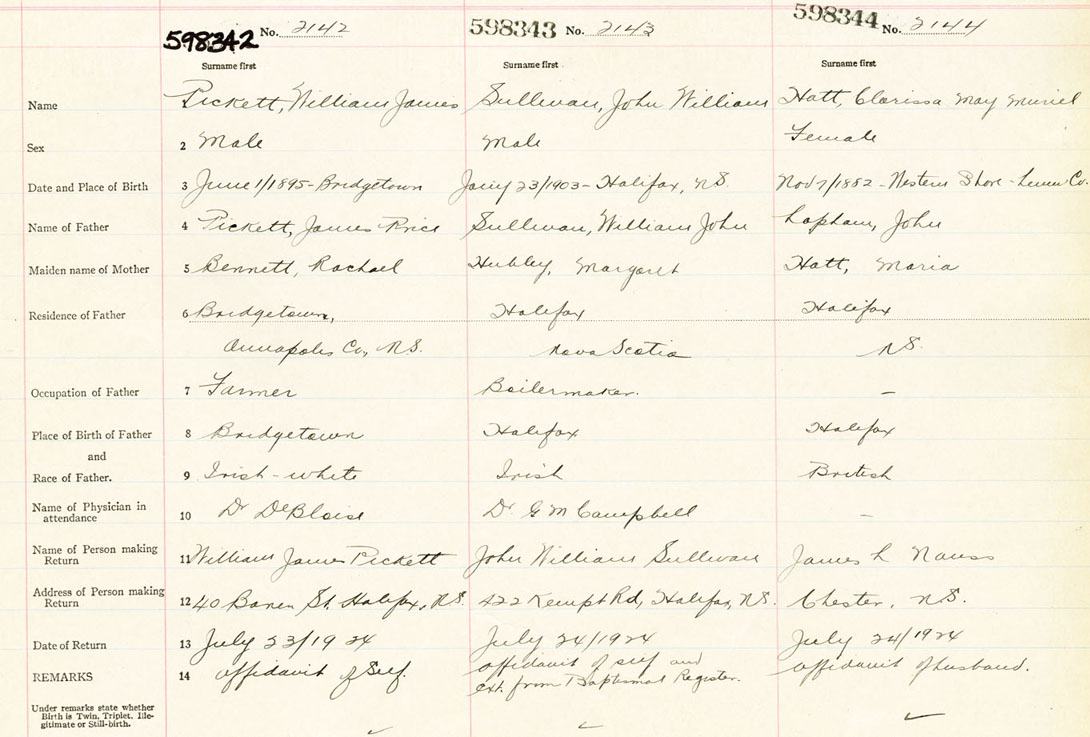 598342 No. 2142 598343 No. 2143 598344 No. 2144
Surname first Surname first Surname first
Name Pickett, William James Sullivan, John William Hatt, Clarissa May Muriel
Sex 2 Male Male Female
Date and Place of Birth 3 June 1/1895 - Bridgetown Jany 23/1903 - Halifax, N.S. Nov 7/1882 - Western Shore - Lunen Co.
Name of Father 4 Pickett, James Price Sullivan, William John John
Maiden name of Mother 5 Bennett, Rachael Hubley, Margaret Hatt, Maria
Residence of Father 6 Bridgetown, Halifax Halifax
Annapolis Co, N.S. Nova Scotia N.S.
Occupation of Father 7 Farmer Boilermaker. —
Place of Birth of Father 8 Bridgetown Halifax Halifax
and
Race of Father. 9 Irish - white Irish British
Name of Physician in
attendance 10 Dr DeBloise Dr G M Campbell —
Name of Person making
Return 11 William James Pickett John William Sullivan James L Nauss
Address of Person making
Return 12 40 St. Halifax, N.S. 422 Kempt Rd, Halifax, N.S. Chester, N.S.
Date of Return 13 July 23/1924 July 24/1924 July 24/1924
REMARKS 14 affidavit of Self. affidavit of self and affidavit of husband.
ext. from Baptismal Register.
Under remarks state whether
Birth is Twin, Triplet. Ille-
gitimate or Still-birth.